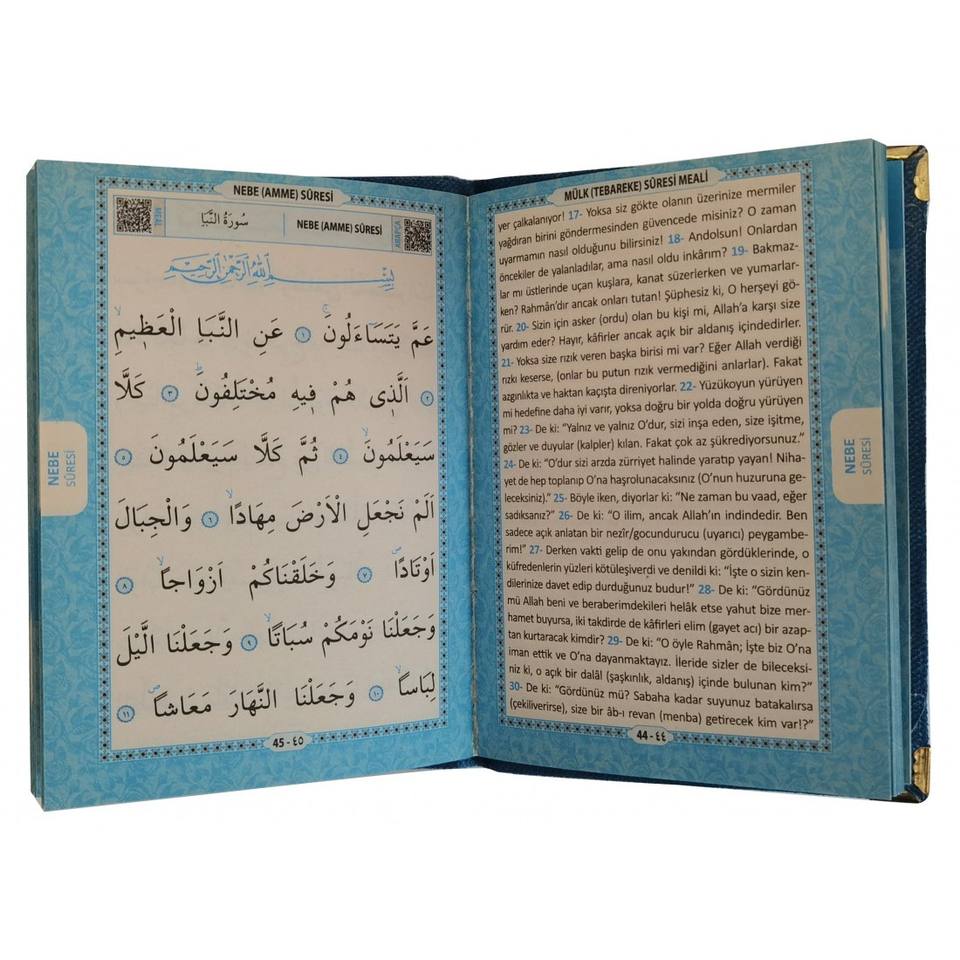 NEBE (AMME) SÛRESİ
MEALİ
سُورَةُ النَّبَأِ
NEBE (AMME) SÛRESİ
ARAPÇA
بِسْمِ اللّٰهِ الرَّحْمٰنِ الرَّحِيمِ
عَمَّ يَتَسَاءَلُونَۚ ﴿١﴾ عَنِ النَّبَاِ الْعَظ۪يمِۙ
﴿٢﴾ اَلَّذ۪ي هُمْ ف۪يهِ مُخْتَلِفُونَۜ ﴿٣﴾ كَلَّا
سَيَعْلَمُونَۙ ﴿٤﴾ ثُمَّ كَلَّا سَيَعْلَمُونَ ﴿٥﴾
اَلَمْ نَجْعَلِ الْاَرْضَ مِهَادًاۙ ﴿٦﴾ وَالْجِبَالَ
اَوْتَادًاۖ ﴿٧﴾ وَخَلَقْنَاكُمْ اَزْوَاجًاۙ ﴿٨﴾
وَجَعَلْنَا نَوْمَكُمْ سُبَاتًاۙ ﴿٩﴾ وَجَعَلْنَا الَّيْلَ
لِبَاسًاۙ ﴿١٠﴾ وَجَعَلْنَا النَّهَارَ مَعَاشًاۖ ﴿١١﴾
45 - ٤٥
NEBE
SÛRESİ
MÜLK (TEBAREKE) SÛRESİ MEALİ
yer çalkalanıyor! 17- Yoksa siz gökte olanın üzerinize mermiler
yağdıran birini göndermesinden güvencede misiniz? O zaman
uyarmamın nasıl olduğunu bilirsiniz! 18- Andolsun! Onlardan
öncekiler de yalanladılar, ama nasıl oldu inkârım? 19- Bakmaz-
lar mı üstlerinde uçan kuşlara, kanat süzerlerken ve yumarlar-
ken? Rahmân'dır ancak onları tutan! Şüphesiz ki, O herşeyi gö-
rür. 20- Sizin için asker (ordu) olan bu kişi mi, Allah'a karşı size
yardım eder? Hayır, kâfirler ancak açık bir aldanış içindedirler.
21- Yoksa size rızık veren başka birisi mi var? Eğer Allah verdiği
rızkı keserse, (onlar bu putun rızık vermediğini anlarlar). Fakat
azgınlıkta ve haktan kaçışta direniyorlar. 22- Yüzükoyun yürüyen
mi hedefine daha iyi varır, yoksa doğru bir yolda doğru yürüyen
mi? 23- De ki: “Yalnız ve yalnız O'dur, sizi inşa eden, size işitme,
gözler ve duyular (kalpler) kılan. Fakat çok az şükrediyorsunuz.”
24- De ki: “O'dur sizi arzda zürriyet halinde yaratıp yayan! Niha-
yet de hep toplanıp O'na haşrolunacaksınız (O'nun huzuruna ge-
leceksiniz).” 25- Böyle iken, diyorlar ki: “Ne zaman bu vaad, eğer
sadıksanız?” 26- De ki: “O ilim, ancak Allah'ın indindedir. Ben
sadece açık anlatan bir nezîr/gocundurucu (uyarıcı) peygambe-
rim!” 27- Derken vakti gelip de onu yakından gördüklerinde, o
küfredenlerin yüzleri kötüleşiverdi ve denildi ki: “İşte o sizin ken-
dilerinize davet edip durduğunuz budur!” 28- De ki: “Gördünüz
mü Allah beni ve beraberimdekileri helâk etse yahut bize mer-
hamet buyursa, iki takdirde de kâfirleri elim (gayet acı) bir azap-
tan kurtaracak kimdir? 29- De ki: “O öyle Rahmân; İşte biz O'na
iman ettik ve O'na dayanmaktayız. İleride sizler de bileceksi-
niz ki, o açık bir dalâl (şaşkınlık, aldanış) içinde bulunan kim?”
30- De ki: “Gördünüz mü? Sabaha kadar suyunuz batakalırsa
(çekiliverirse), size bir âb-ı revan (menba) getirecek kim var!?”
44 - ٤٤
NEBE
SÛRESİ